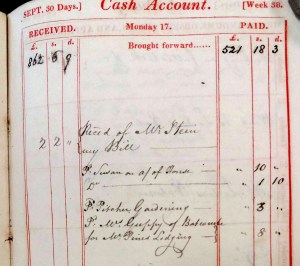 SEPT. 30 Days.] Cash Account. [Week 38.
RECEIVED. Monday 17. PAID.
£. s. d. Brought forward...... £. s. d.
862 6 9 521 18 3
Reced of Mr Steen
2 2 " my Bill
Pd Susan on a/c of House " 10 "
Do " 1 10
Pd Pitcher, Gardening " 3 "
Pd Mrs Guppy of Batcombe
for Mr Pines Lodging " 8 "